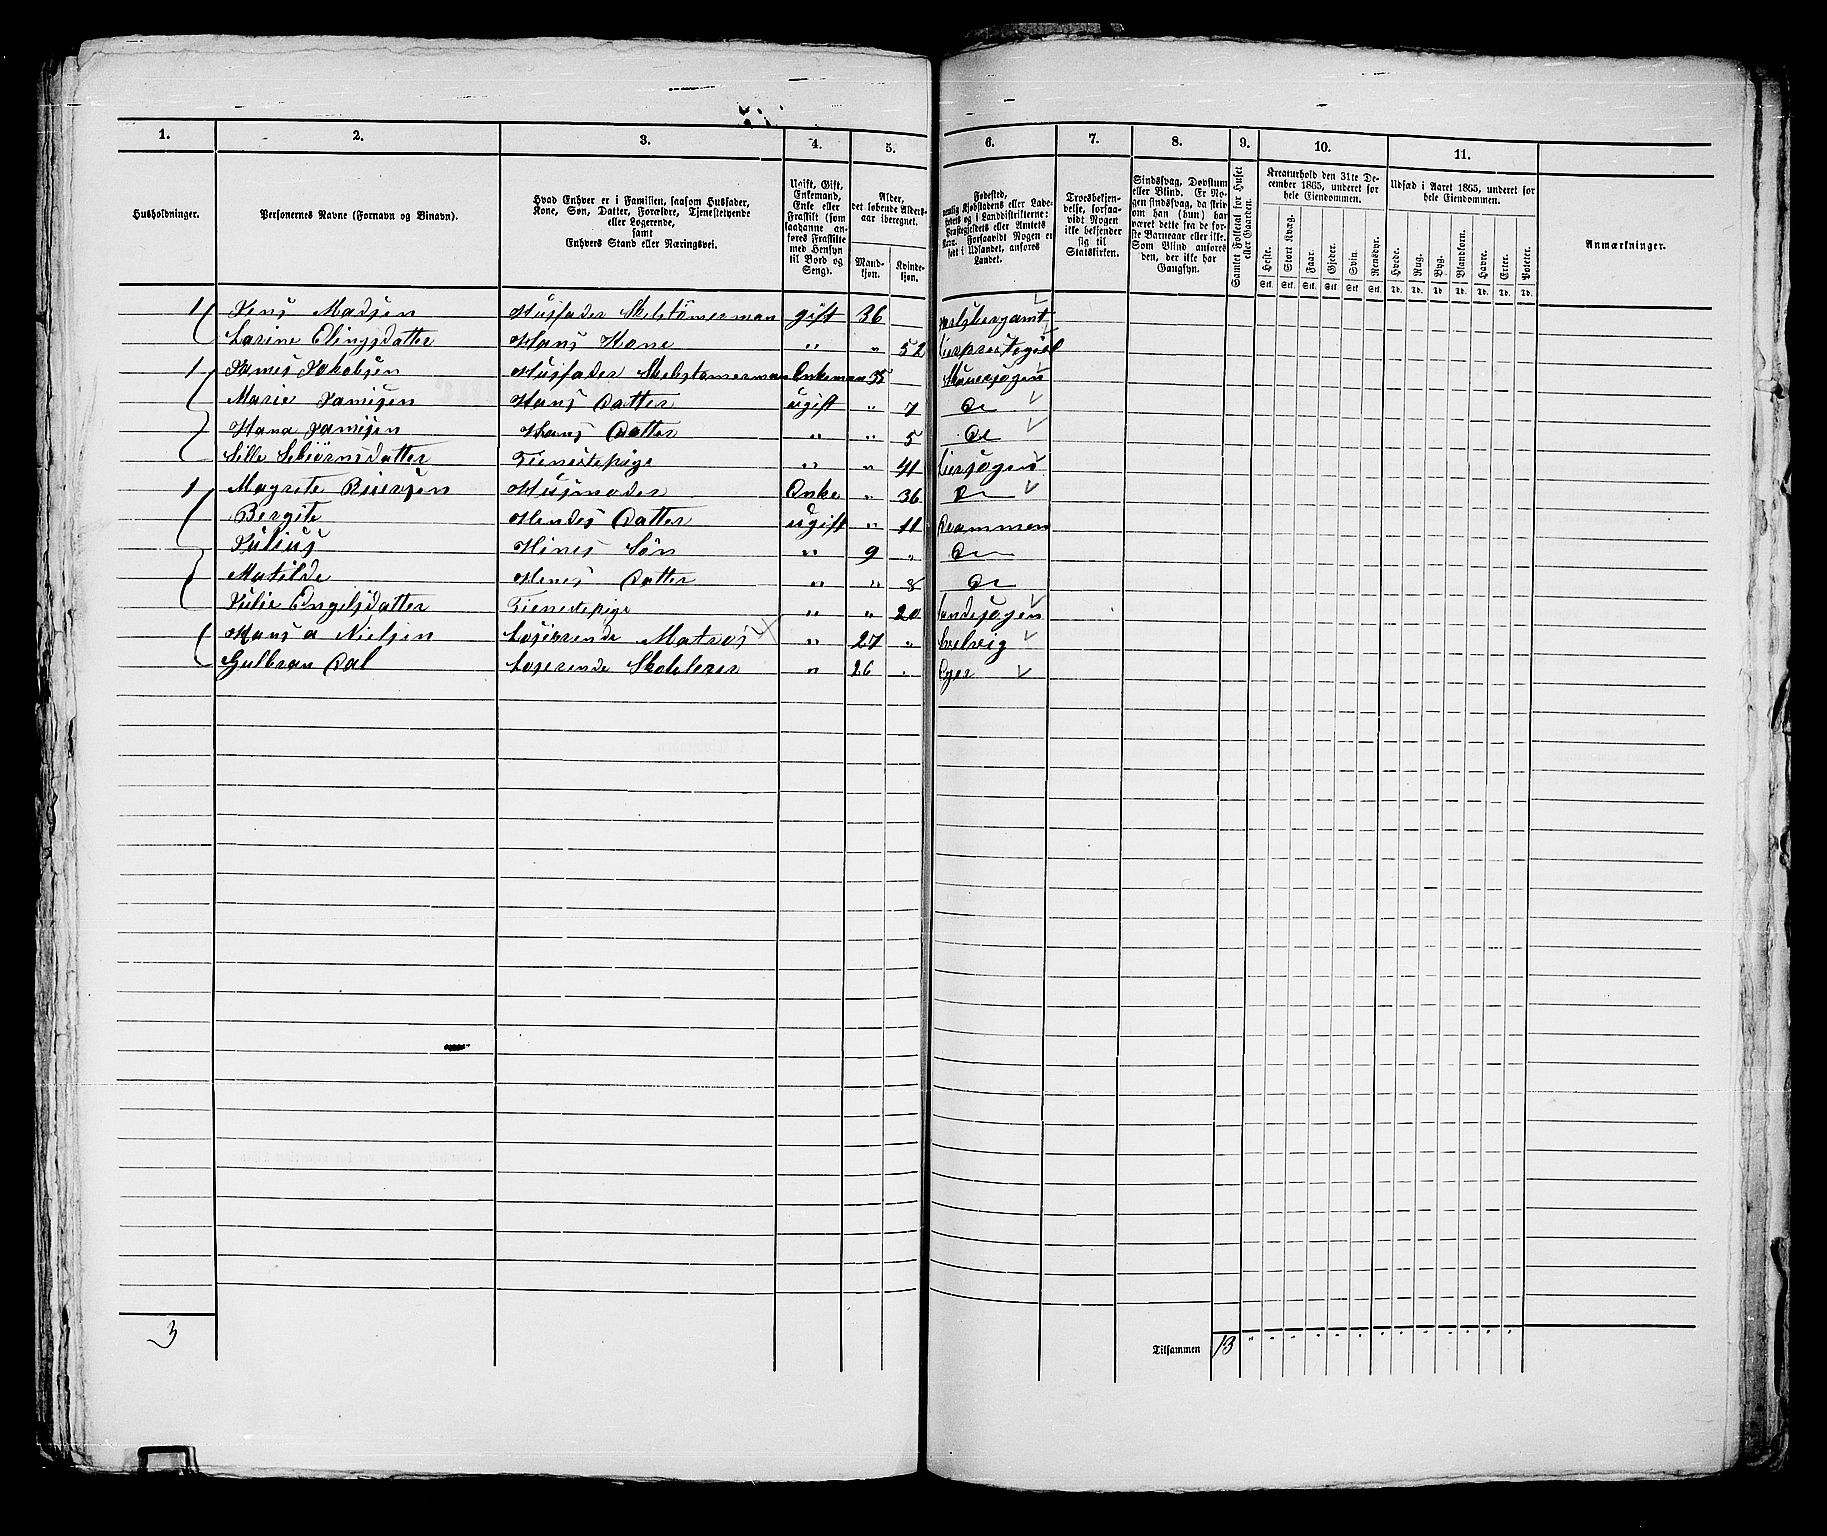 1. 2. 3. 4. 5. 6. 7. 8. 9. 10. 11.
Husholdninger.
Personernes Navne (Fornavn og Binavn).
Hvad Enhver er i Familien, saasom Husfader,
Kone, Søn, Datter, Forældre, Tjenestetyende
eller Logerende,
samt
Enhvers Stand eller Næringsvei.
Ugift, Gift,
Enkemand,
Enke eller
Fraskilt (som
saadanne an-
føres Fraskilte
med Hensyn
til Bord og
Seng).
Alder,
det løbende Alders-
aar iberegnet.
Mand-
kjøn.
Kvinde-
kjøn.
Fødested,
nemlig Kjøbstadens eller Lade-
stedets og i Landdistrikterne:
Præstegjeldets eller Amtets
Navn. Forsaavidt Nogen er
født i Udlandet, anføres
Landet.
Troesbekjen-
delse, forsaa-
vidt Nogen
ikke bekjender
sig til
Statskirken.
Sindssvag, Døvstum
eller Blind. Er No-
gen sindssvag, da skriv
om han (hun) har
været dette fra de før-
ste Barneaar eller ikke.
Som Blind anføres
den, der ikke har
Gangsyn.
Samlet Folketal for Huset
eller Gaarden.
Kreaturhold den 31te De-
cember 1865, underet for
hele Eiendommen.
Heste. Stort Kvæg. Faar. Gjeder. Svin. Rensdyr.
Stk. Stk. Stk. Stk. Stk. Stk.
Udsæd i Aaret 1865, underet for
hele Eiendommen.
Hvede. Rug. Byg. Blandkorn. Havre. Erter. Poteter.
Td. Td. Td. Td. Td. Td. Td.
Anmærkninger.
1 Jens Madsen Husfader Skibstömerman gift 36
Larine Elingsdatter Hans Kone " " 52 Lierprestegiel
1 James Jakobsen Husfader Skibstomerman Enkeman 35
Marie Jamisen Hans Datter ugift " 7 Do
Hana Jamisen Hans Datter " " 5 Do
Sille Sebiørnsdatter Tienestepige " " 41 Liersogen
1 Magrete Reiersen Husmoder Enke " 36 Do
Bergite Hendes Datter ugift " 11 Drammen
Julius Hines Søn " 9 " Do
Matilde Henes Datter " " 8 Do
Julie Engelsdatter Tienestepige " " 20 Sandesogen
Hans A Nielsen Losierende Matros " 27 " Svelvig
Gulbran Dal Loserende Skolelerer " 26 " Eger
3
Tilsammen 13 " " " " " " " " " " " " "